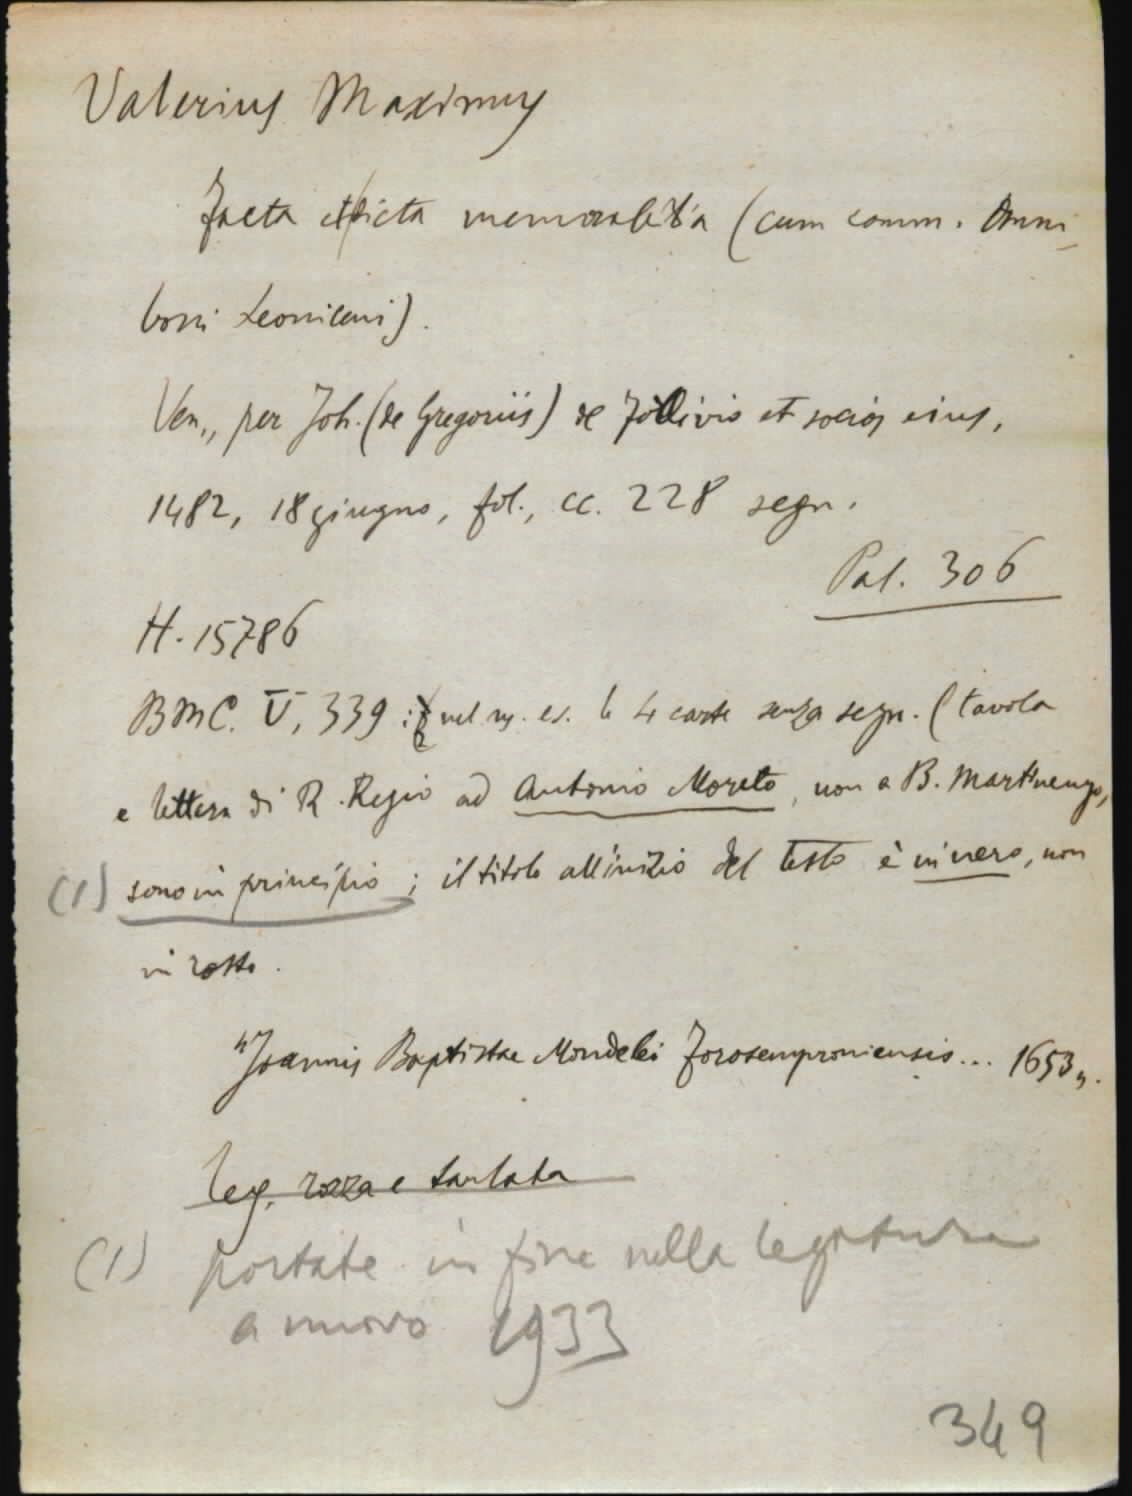 Valerius Maximus
Facta et dicta memorabilia (cum comm. Omni-
boni Leoniceni).
Ven., per Joh. (de Gregoriis) de Forlivio et socios eius,
1482, 18 giugno, fol., cc. 228 segn.
Pal. 306
H. 15786
BMC. V, 339 : nel ns. es. le 4 carte senza segn. (tavola
e lettera di R. Regio ad Antonio Moreto, non a B. Martinengo,
(1) sono in principio ; il titolo all'inizio del testo è in nero, non
in rosso.
"Joannis Baptistae Mondelei Forosemproniensis... 1653".
leg. rozza e tarlata
(1) portate in fine nella legatura
a nuovo 1933
349